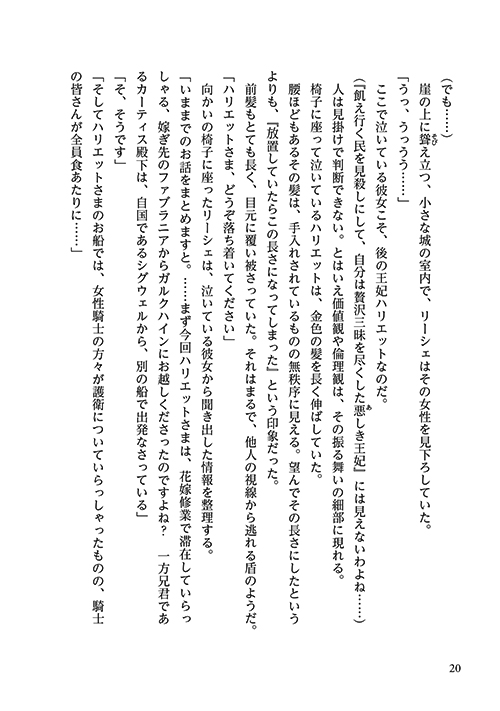 (でも……)
崖の上に聳え立つ、小さな城の室内で、リーシェはその女性を見下ろしていた。
「うっ、うっうう……」
ここで泣いている彼女こそ、後の王妃ハリエットなのだ。
(『飢え行く民を見殺しにして、自分は贅沢三昧を尽くした悪しき王妃』には見えないわよね……)
人は見掛けで判断できない。とはいえ価値観や倫理観は、その振る舞いの細部に現れる。
椅子に座って泣いているハリエットは、金色の髪を長く伸ばしていた。
腰ほどもあるその髪は、手入れされているものの無秩序に見える。望んでその長さにしたという
よりも、『放置していたらこの長さになってしまった』という印象だった。
前髪もとても長く、目元に覆い被さっていた。それはまるで、他人の視線から逃れる盾のようだ。
「ハリエットさま、どうぞ落ち着いてください」
向かいの椅子に座ったリーシェは、泣いている彼女から聞き出した情報を整理する。
「いままでのお話をまとめますと。……まず今回ハリエットさまは、花嫁修業で滞在していらっ
しゃる、嫁ぎ先のファブラニアからガルクハインにお越しくださったのですよね?　一方兄君であ
るカーティス殿下は、自国であるシグウェルから、別の船で出発なさっている」
「そ、そうです」
「そしてハリエットさまのお船では、女性騎士の方々が護衛についていらっしゃったものの、騎士
の皆さんが全員食あたりに……」
20